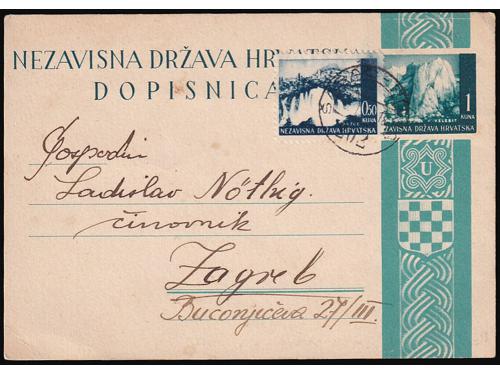 NEZAVISNA DRŽAVA
DOPISNICA
0.50
KUNA
NEZAVISNA DRŽAVA HRVATSKA
1
KUNA
VELEBIT
NEZAVISNA DRŽAVA HRVATSKA
U
Gospodin
Ladislav Nöthig.
činovnik
Zagreb
Buconjićeva 27/III.